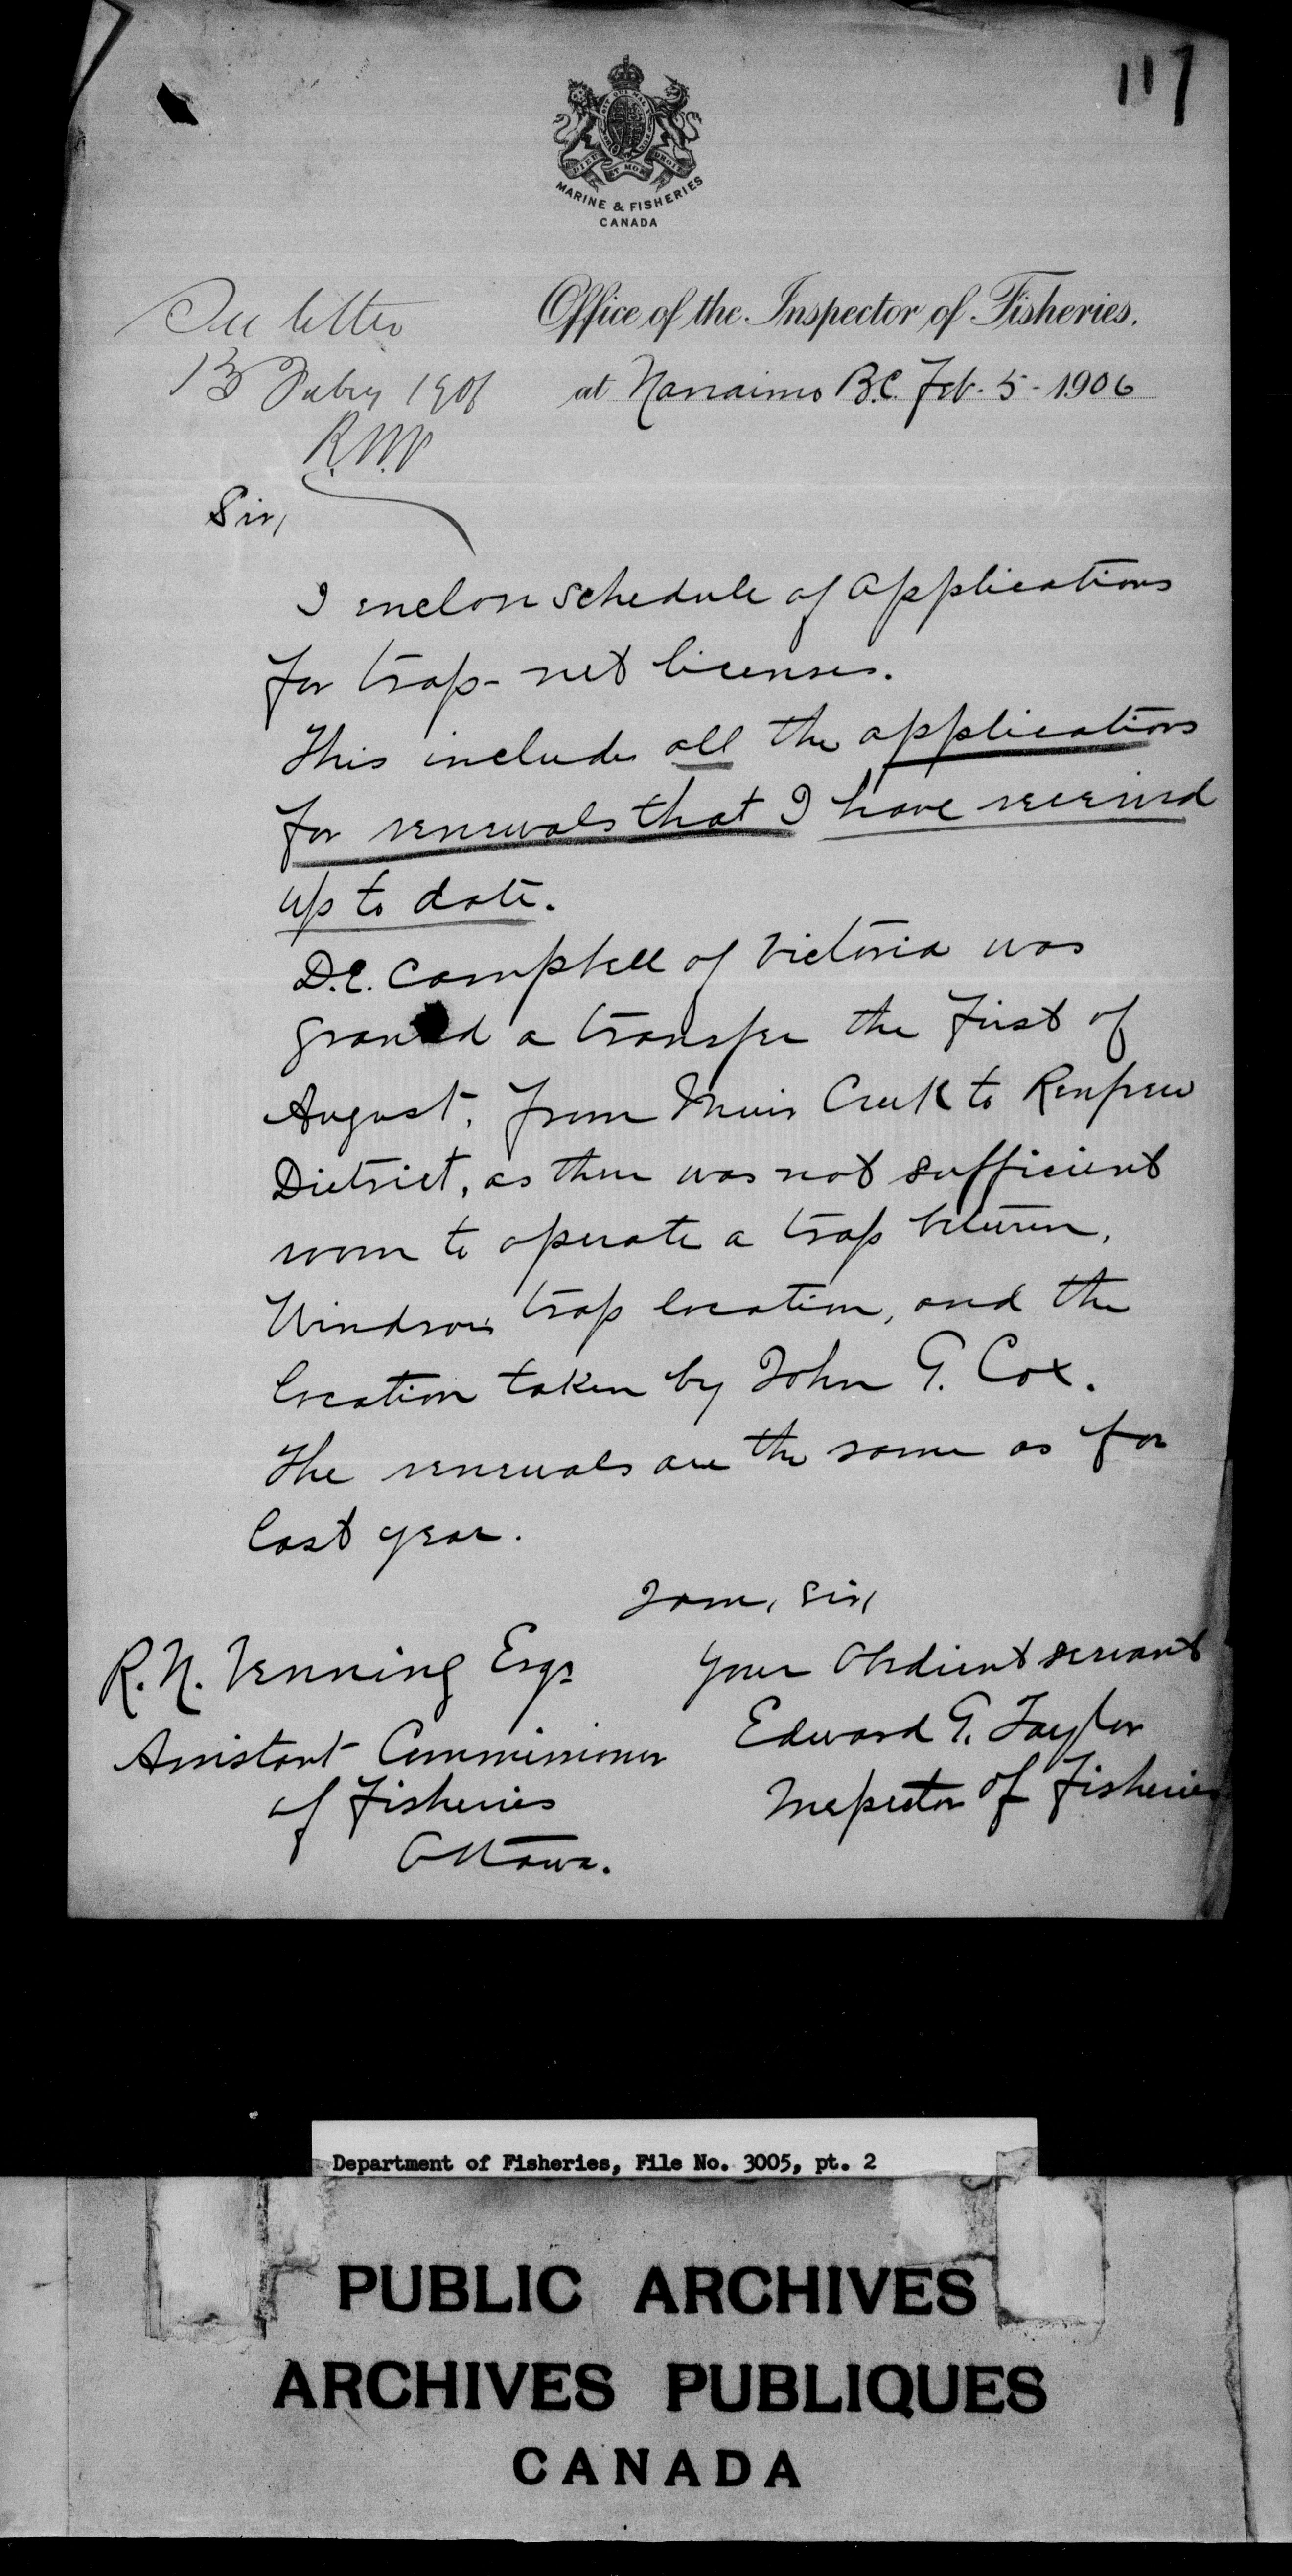 117
DIEU ET MON DROIT
MARINE & FISHERIES
CANADA
See letter
13 Febry 1906
R.N.V
Office of the Inspector of Fisheries.
at Nanaimo B.C. Feb. 5 - 1906
Sir,
I enclose schedule of applications
for trap-net licenses.
This includes all the applications
for renewals that I have received
up to date.
D.E. Campbell of Victoria was
granted a transfer the first of
August, from Muir Creek to Renfrew
District, as there was not sufficient
room to operate a trap between,
Windsors trap location, and the
location taken by John G. Cox.
The renewals are the same as for
last year.
I am, Sir,
R.N. Venning Esqr
your obedient servant
Assistant Commissioner
Edward G. Taylor
of Fisheries
Inspector of Fisheries
Ottawa.
Department of Fisheries, File No. 3005, pt. 2
PUBLIC ARCHIVES
ARCHIVES PUBLIQUES
CANADA